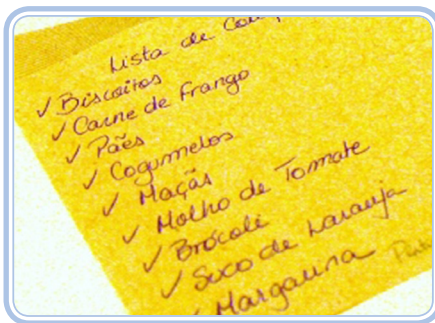 Lista de
✓ Biscoitos
✓ Carne de Frango
✓ Pães
✓ Cogumelos
✓ Maçãs
✓ Molho de Tomate
✓ Brócoli
✓ Suco de Laranja
✓ Margarina